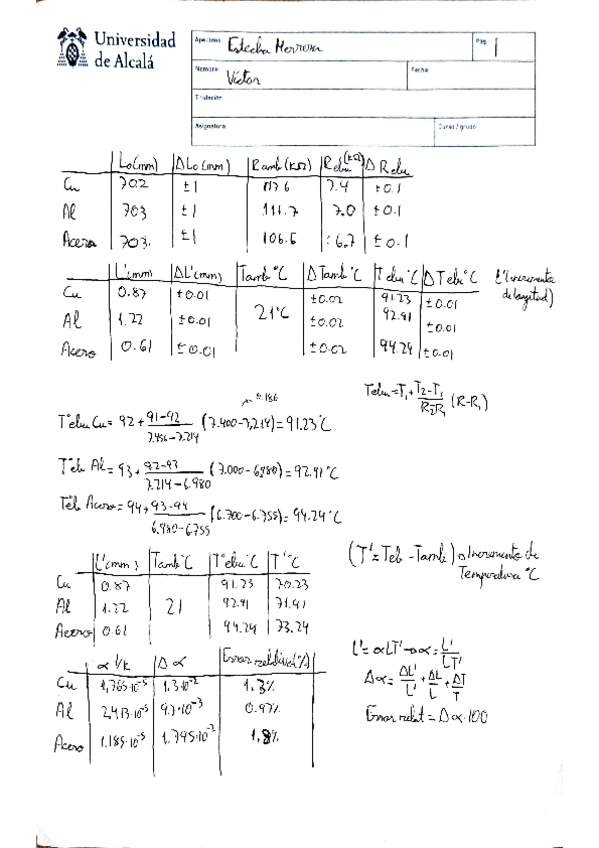 Universidad
de Alcalá
Apellidos: Estecha Herrera
Pág. 1
Nombre: Víctor
Fecha:
Titulación:
Asignatura:
Curso / grupo:
Lo(mm) ΔLo(mm) Ramb(kΩ) Rebu(kΩ) Δ Rebu
Cu 702 ±1 117.6 7.4 ±0.1
Al 703 ±1 111.7 7.0 ±0.1
Acero 703. ±1 106.6 6.7 ±0.1
L'(mm) ΔL'(mm) Tamb °C ΔTamb °C Tebu °C ΔTeb °C L'(incremento
de longitud)
Cu 0.87 ±0.01 21°C ±0.02 91.23 ±0.01
Al 1.22 ±0.01 ±0.02 92.91 ±0.01
Acero 0.61 ±0.01 ±0.02 94.24 ±0.01
Tebu = T₁ + T₂-T₁/R₂-R₁ (R-R₁)
0.186
T°ebu Cu = 92 + 91-92/7.456-7.214 (7.400-7.214) = 91.23°C
T°eb Al = 93 + 92-93/7.214-6.980 (7.000-6.980) = 92.91°C
T°eb Acero = 94 + 93-94/6.980-6.755 (6.700-6.755) = 94.24°C
(T' = Teb - Tamb) → Incremento de
Temperatura °C
L'(mm) Tamb °C T°ebu °C T' °C
Cu 0.87 21 91.23 70.23
Al 1.22 92.91 71.91
Acero 0.61 94.24 73.24
α 1/K Δ α Error relativo(%)
Cu 1,765·10⁻⁵ 1.3·10⁻² 1.3%
Al 2,413·10⁻⁵ 9.7·10⁻³ 0.97%
Acero 1.185·10⁻⁵ 1.795·10⁻² 1,8%
L' = αLT' → α = L'/LT'
Δα = ΔL'/L' + ΔL/L + ΔT/T
Error relat = Δα·100